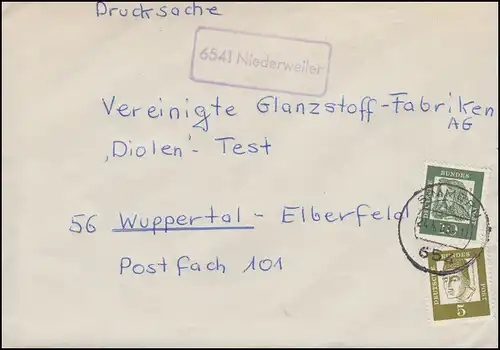 Drucksache
6541 Niederweiler
Vereinigte Glanzstoff-Fabriken
AG
‚Diolen'- Test
56 Wuppertal - Elberfeld
Postfach 101
BUNDES
BUNDES
DEUTSCHE
POST
5